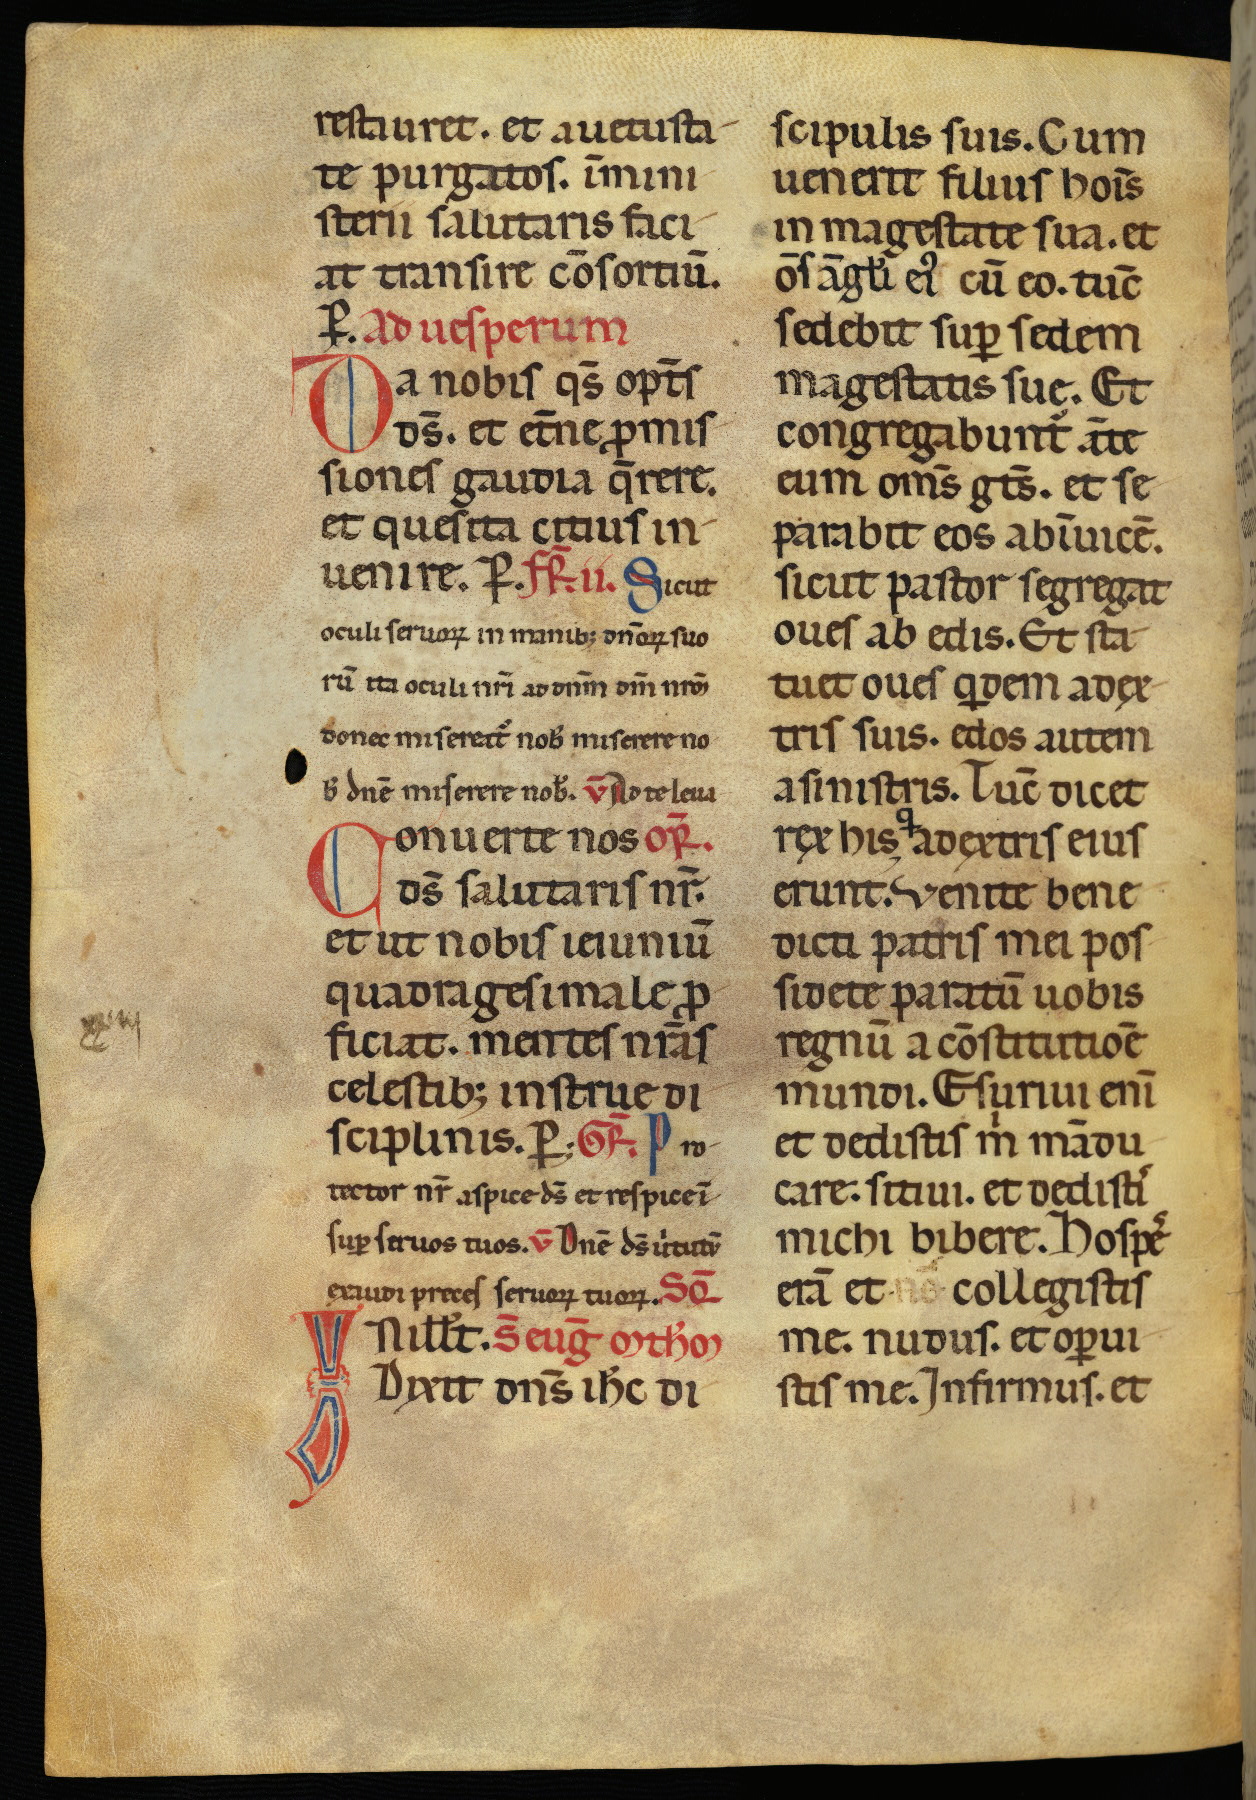 restauret. et auetusta-
te purgatos. im̄ini
sterii salutaris faci-
at transire cōsortiū.
P. Ad uesperum
Da nobis qs̄ opt̄s
ds̄. et et̄ne ꝓmis
siones gaudia q̄rere.
et quesita citius in-
uenire. P. Fr̄. ii. Sicut
oculi seruoꝝ in manib; dn̄oꝝ suo
rū ita oculi nr̄i ad dnm̄ dm̄ nrm̄
donec misereat᷑ nob̄ miserere no
b̄ dn̄e miserere nob̄. v̄ Ad te leua
Conuerte nos op̄r.
ds̄ salutaris nr̄.
et ut nobis ieiuniū
quadragesimale ꝓ
ficiat. mentes nr̄as
celestib; instrue di
sciplinis. P. Gr̄. Pro-
tector nr̄ aspice ds̄ et respice ī
suꝑ seruos tuos. v̄ Dn̄e ds̄ uirtutū
exaudi preces seruoꝝ tuoꝝ. Sq̄
IN ill̄t. s̄ euḡ mth̄m
Dixit dn̄s ih̄c di
scipulis suis. Cum
uenerit filius hoīs
in magestate sua. et
ōs āgl̄i eiꝰ cū eo. tūc
sedebit suꝑ sedem
magestatis sue. Et
congregabunt᷑ āte
eum om̄s gt̄s. et se
parabit eos abīuicē.
sicut pastor segregat
oues ab edis. Et sta-
tuet oues qͥdem adex-
tris suis. edos autem
asinistris. Tūc dicet
rex his q adextris eius
erunt. Venite bene
dicti patris mei pos
sidete paratū uobis
regnū a cōstitutiōe
mundi. Esuriui enī
et dedistis mͥ mādu
care. sitiui. et dedisti᷒
michi bibere. Hospe᷒
erā et nō collegistis
me. nudus. et oꝑui
stis me. Infirmus. et